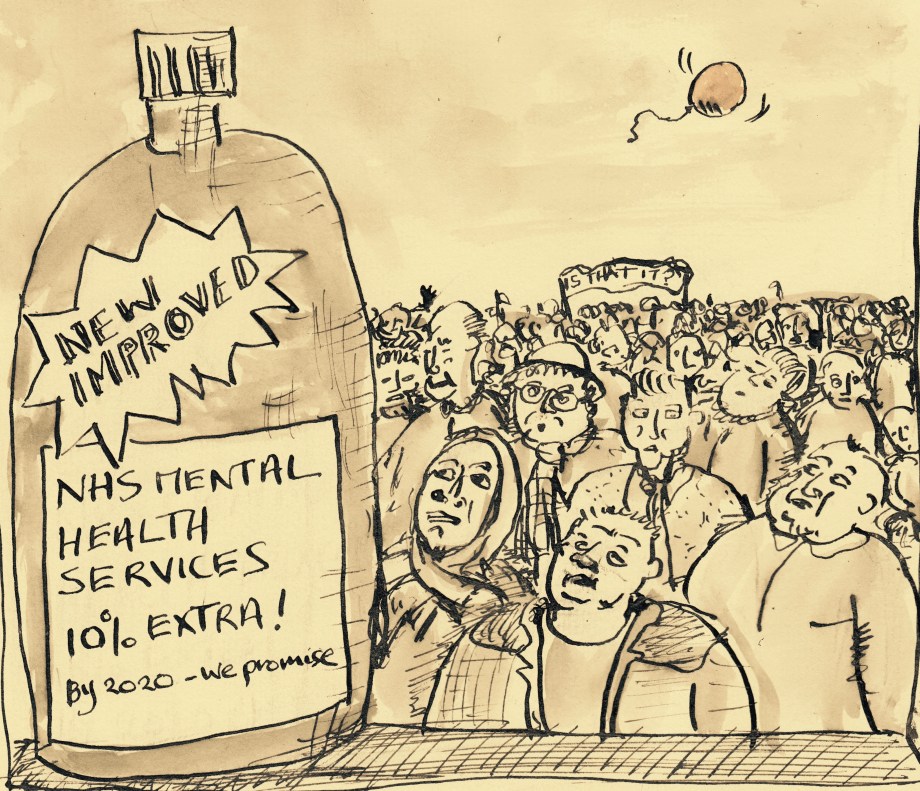 NEW
IMPROVED
NHS MENTAL
HEALTH
SERVICES
10% EXTRA!
By 2020 - we promise
IS THAT IT?